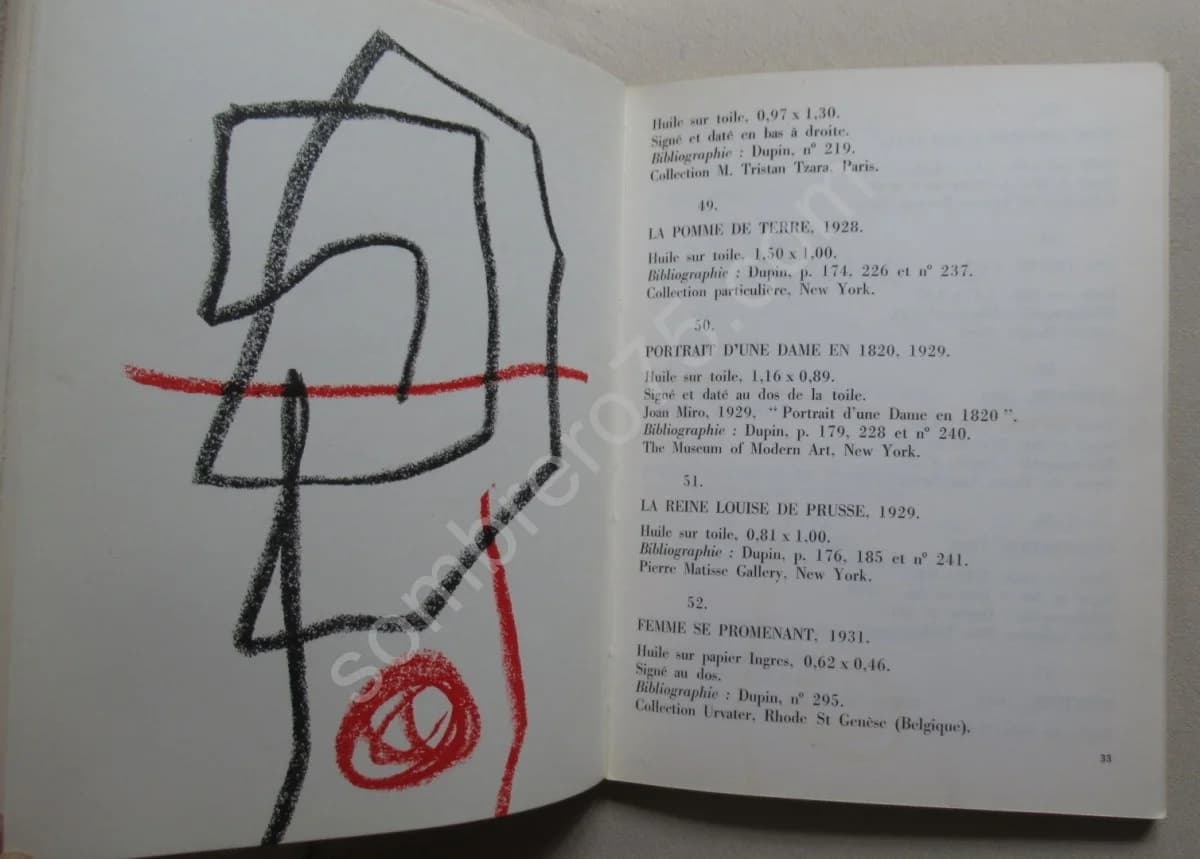 Huile sur toile, 0,97 x 1,30.
Signé et daté en bas à droite.
Bibliographie : Dupin, nº 219.
Collection M. Tristan Tzara, Paris.
49.
LA POMME DE TERRE, 1928.
Huile sur toile, 1,50 x 1,00.
Bibliographie : Dupin, p. 174, 226 et nº 237.
Collection particulière, New York.
50.
PORTRAIT D'UNE DAME EN 1820, 1929.
Huile sur toile, 1,16 x 0,89.
Signé et daté au dos de la toile.
Joan Miro, 1929, “ Portrait d'une Dame en 1820 ”.
Bibliographie : Dupin, p. 179, 228 et nº 240.
The Museum of Modern Art, New York.
51.
LA REINE LOUISE DE PRUSSE, 1929.
Huile sur toile, 0,81 x 1,00.
Bibliographie : Dupin, p. 176, 185 et nº 241.
Pierre Matisse Gallery, New York.
52.
FEMME SE PROMENANT, 1931.
Huile sur papier Ingres, 0,62 x 0,46.
Signé au dos.
Bibliographie : Dupin, nº 295.
Collection Urvater, Rhode St Genèse (Belgique).
33
sombrero75.com